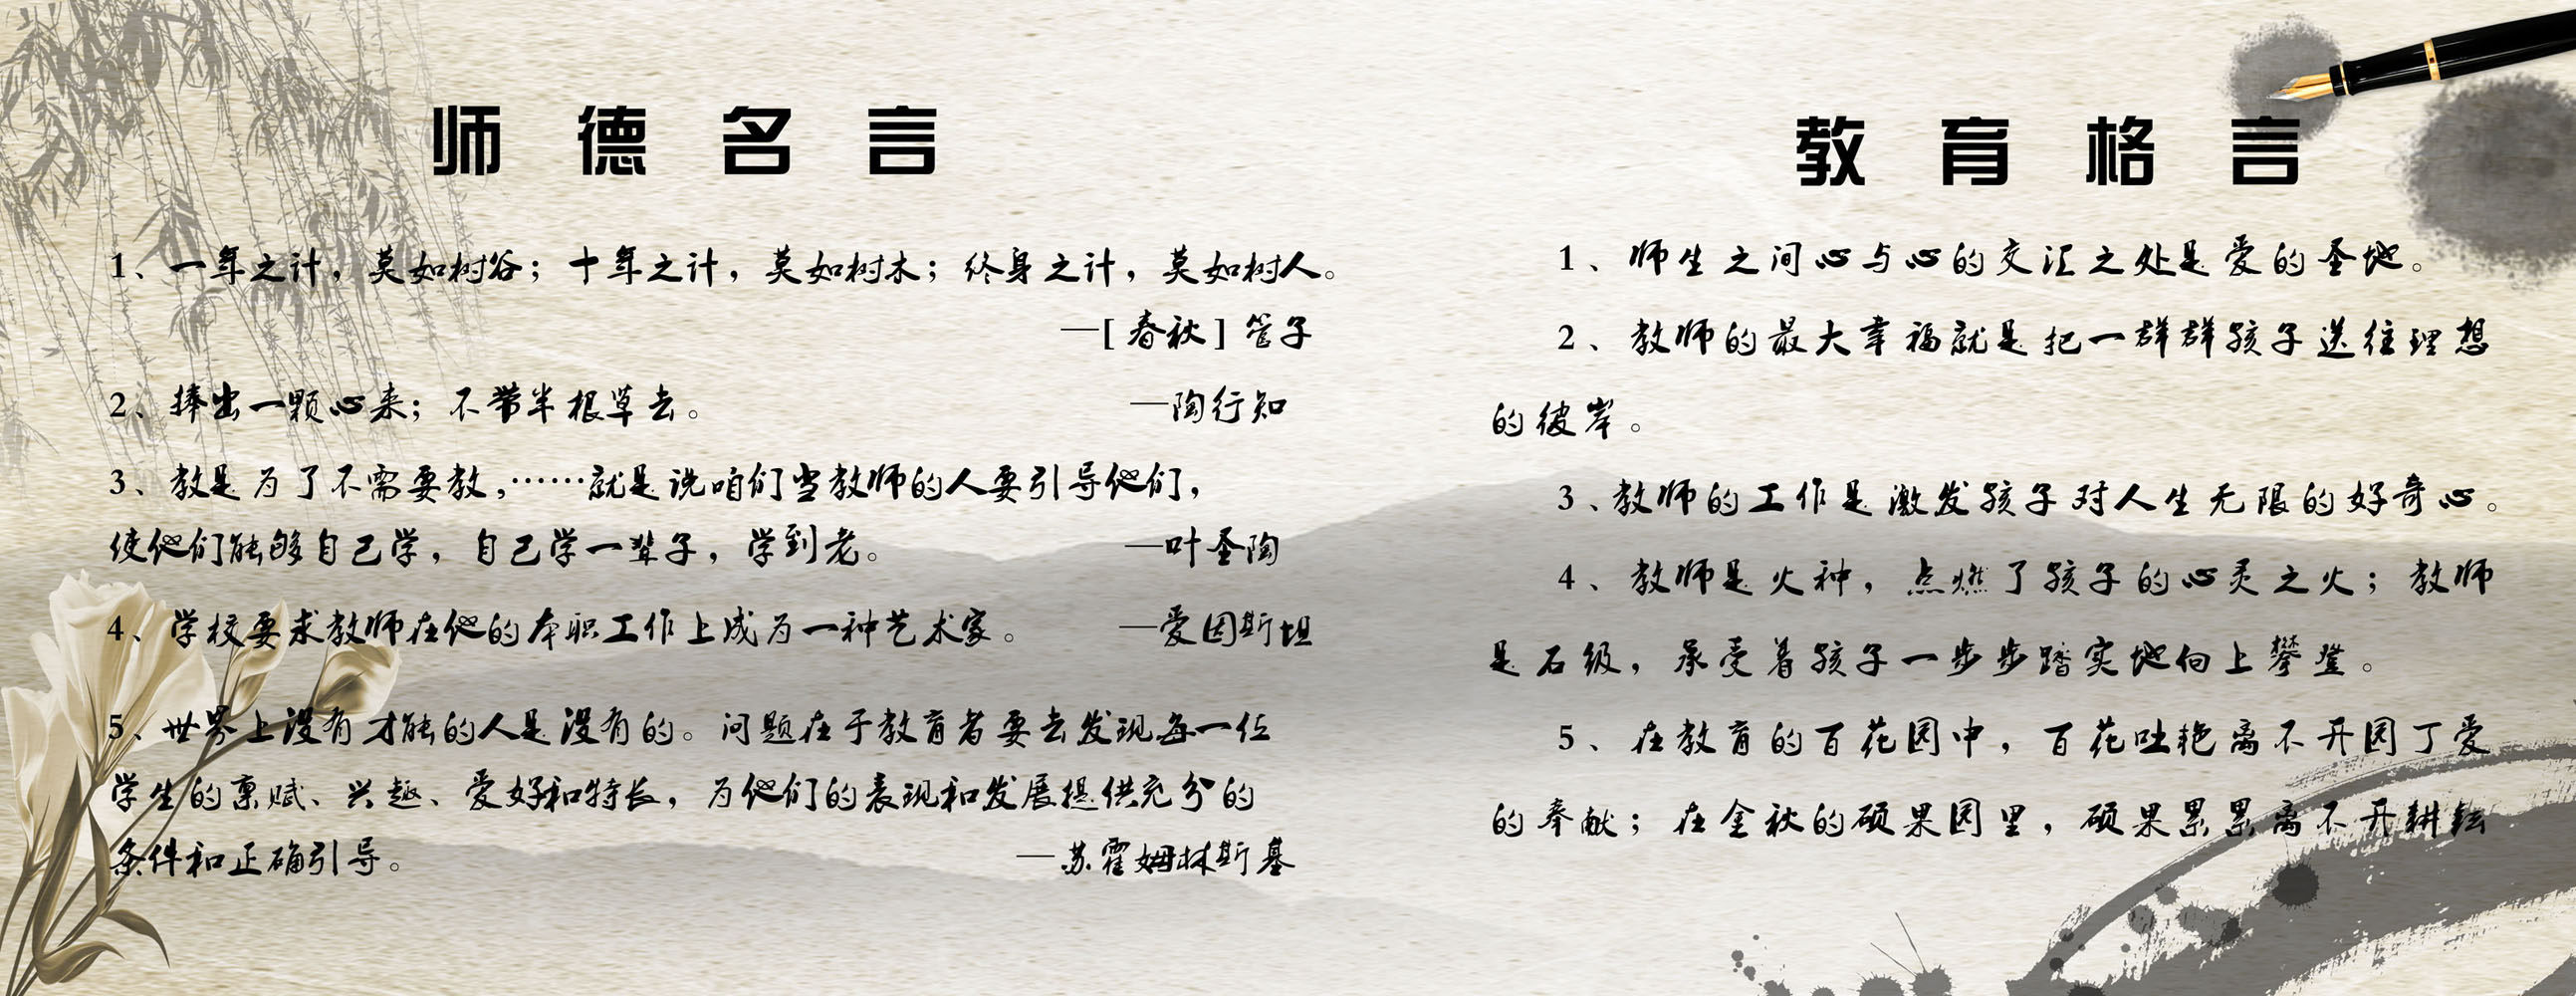 师德名言
1、一年之计，莫如树谷；十年之计，莫如树木；终身之计，莫如树人。
—[春秋]管子
2、捧出一颗心来；不带半根草去。 —陶行知
3、教是为了不需要教，……就是说咱们当教师的人要引导他们，
使他们能够自己学，自己学一辈子，学到老。 —叶圣陶
4、学校要求教师在他的本职工作上成为一种艺术家。 —爱因斯坦
5、世界上没有才能的人是没有的。问题在于教育者要去发现每一位
学生的禀赋、兴趣、爱好和特长，为他们的表现和发展提供充分的
条件和正确引导。 —苏霍姆林斯基
教育格言
1、师生之间心与心的交汇之处是爱的圣地。
2、教师的最大幸福就是把一群群孩子送往理想
的彼岸。
3、教师的工作是激发孩子对人生无限的好奇心。
4、教师是火种，点燃了孩子的心灵之火；教师
是石级，承受着孩子一步步踏实地向上攀登。
5、在教育的百花园中，百花吐艳离不开园丁爱
的奉献；在金秋的硕果园里，硕果累累离不开耕耘